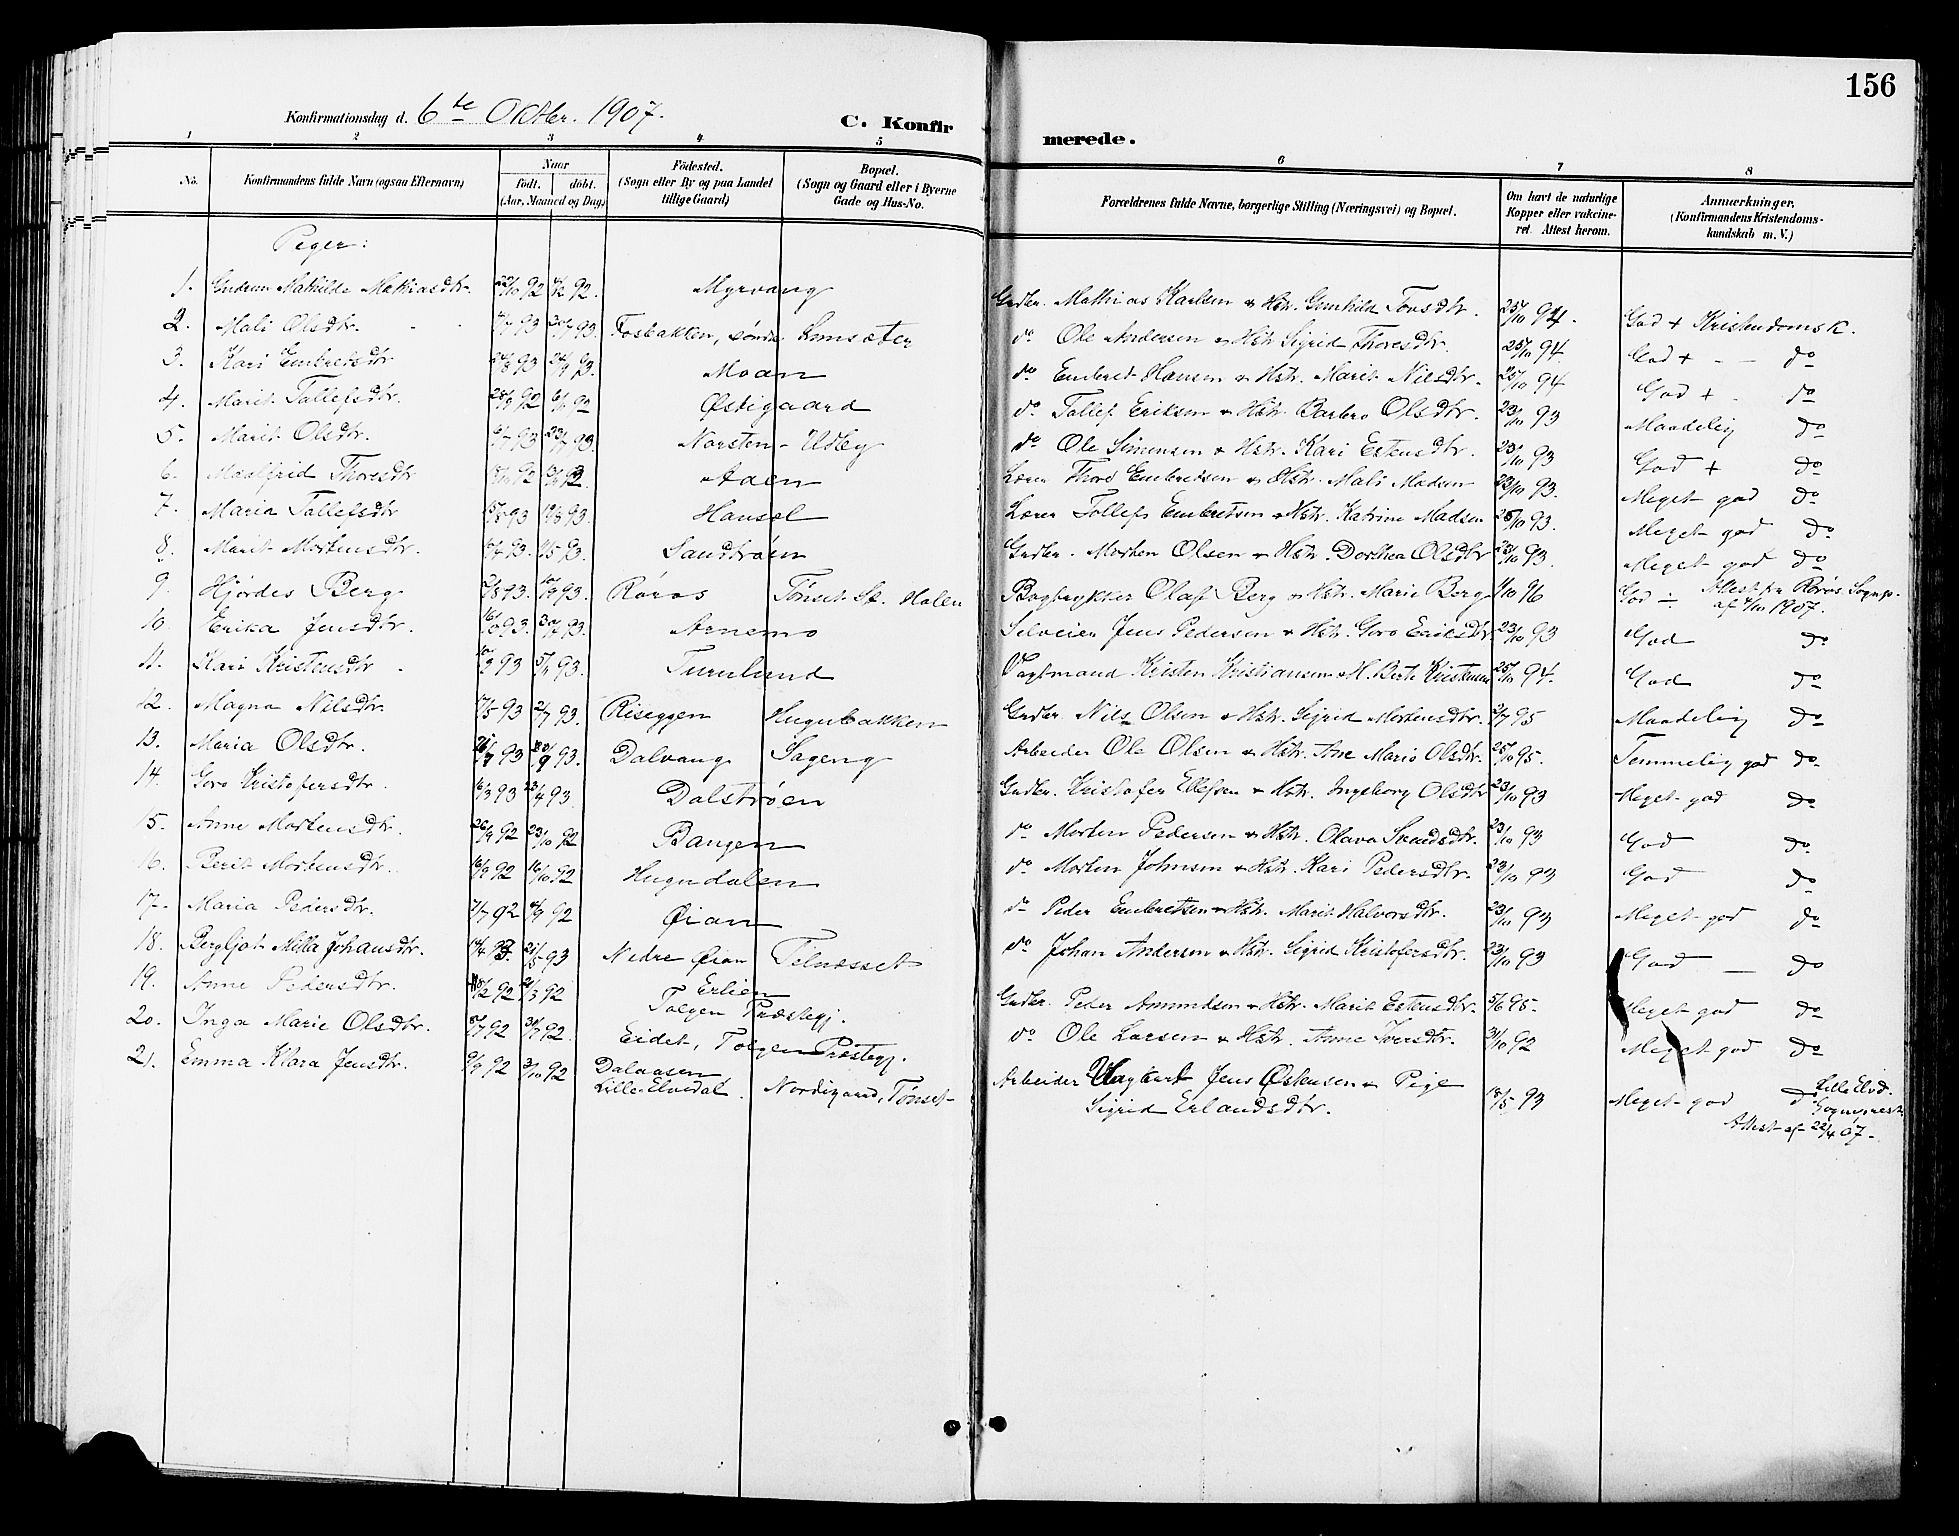 156
Konfirmationsdag d. 6te Oktbr. 1907.
C. Konfirmerede.
1 2 3 4 5 6 7 8
No.
Konfirmandens fulde Navn (ogsaa Efternavn)
Naar
født. døbt.
(Aar, Maaned og Dag)
Fødested.
(Sogn eller By og paa Landet
tillige Gaard)
Bopæl.
(Sogn og Gaard eller i Byerne
Gade og Hus-No.
Forældrenes fulde Navne, borgerlige Stilling (Næringsvei) og Bopæl.
Om havt de naturlige
Kopper eller vakcine-
ret Attest herom.
Anmærkninger.
(Konfirmandens Kristendoms-
kundskab m. V.)
Piger:
1. Gudrun Mathilde Mathiasdtr. 92 92. Myrvang Grdbr. Mathias Karlsen & Hstr. Gunhild Tonsdtr. 25/10 94. God + Kristendomsk.
2. Mali Olsdtr. 93 30/7 93. Fosbakken, søndre Lonsæter do Ole Andersen & Hstr. Sigrid Thoresdtr. 25/10 94 God + - do
3. Kari Embretsdtr 24/8 93 24/9 93. Moan do Embret Hansen & Hstr. Marit Nilsdtr. 25/10 94 God + - do
4. Marit Tollefsdtr. 92 92 Østigaard do Tollef Eriksen & Hstr. Barbro Olsdtr. 23/10 93 Maadelig do
5. Marit Olsdtr. 93 23/7 93. Norsten - Udby do Ole Simensen & Hstr. Kari Estensdtr. 23/10 93 God + do
6. Maalfrid Thoresdtr 92 92 Aaen Lærer Thore Embretsen & Hstr. Mali Madsen 23/10 93. Meget god do
7. Maria Tollefsdtr 93 93. Hansel Lærer Tollef Embretsen & Hstr. Katrine Madsen 93. Meget god do
8. Marit Mortensdtr. 93. 93. Sandtrøen Grdbr. Morten Olsen & Hstr. Dorthea Olsdtr 23/10 93. Meget god do
9. Hjördes Berg 93. 93. Røros Tønset St. Holen Bogtrykker Olaf Berg & Hstr. Marie Berg 96 God ÷ Attest fra Röros Sognep. af 4/10 1907.
10. Erika Jensdtr. 93. 30/7 93. Arnemo Selveier Jens Pedersen & Hstr. Goro Eriksdtr 23/10 93 God do
11. Kari Kristensdtr 93 93. Turulund Vogtmand Kristen Kristiansen & H. Berte 25/10 94. God do
12. Magna Nilsdtr. 17/5 93 2/7 93. Riseggen Hugubakken Grdbr. Nils Olsen & Hstr. Sigrid Mortensdtr. 95 Maadelig do
13. Maria Olsdtr. 93 93. Dalvang Sageng Arbeider Ole Olsen & Hstr. Ane Marie Olsdtr. 25/10 95. Temmelig god do
14. Goro Kristofersdtr. 93 23/4 93. Dalstrøen Grdbr. Kristofer Ellefsen & Hstr. Ingeborg Olsdtr 23/10 93 Meget god do
15. Anne Mortensdtr. 26/9 92 23/10 92 Bangen do Morten Pedersen & Hstr. Olava Svendsdtr. 23/10 93 God do
16. Berit Mortensdtr. 92 16/10 92 Hugudalen do Morten Johnsen & Hstr. Kari Pedersdtr. 23/10 93 God do
17. Maria Pedersdtr. 92 92 Øian do Peder Embretsen & Hstr. Marit Halvorsdtr. 23/10 93 Meget god do
18. Bergljot Milla Johansdtr. 93. 21/5 93 Nedre Øian Telnesset do Johan Andersen & Hstr. Sigrid Kristofersdtr. 23/10 93 God - do
19. Anne Pedersdtr. 92 92 Erlien Tolgen Præstegj. Grdbr. Peder Amundsen & Hstr. Marit Estensdtr. 5/6 95. Meget god do
20. Inga Marie Olsdtr. 92 31/7 92. Eidet, Tolgen Præstegj. do Ole Larsen & Hstr. Anne Iversdtr. 31/10 92 Meget god do
21. Emma Klara Jensdtr. 9/9 92 92 Dalaasen Lille-Elvedal. Nordigaard, Tønset- Arbeider Ungkarl Jens Østensen & Pige Sigrid Erlandsdtr. 18/5 93 Meget god do Lille Elvd. Sogneprest Attest af 22/4 07.